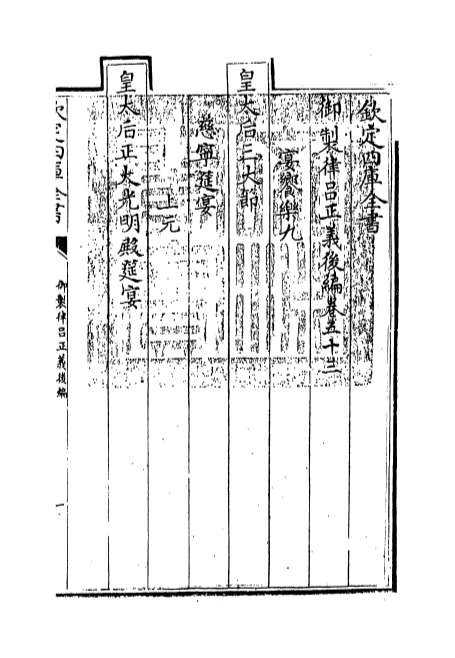 欽定四庫全書
御製律呂正義後編卷五十三
宴饗樂九
皇太后三大節
慈寧筵宴
上元
皇太后正大光明殿筵宴
欽定四庫全書
御製律呂正義後編
一